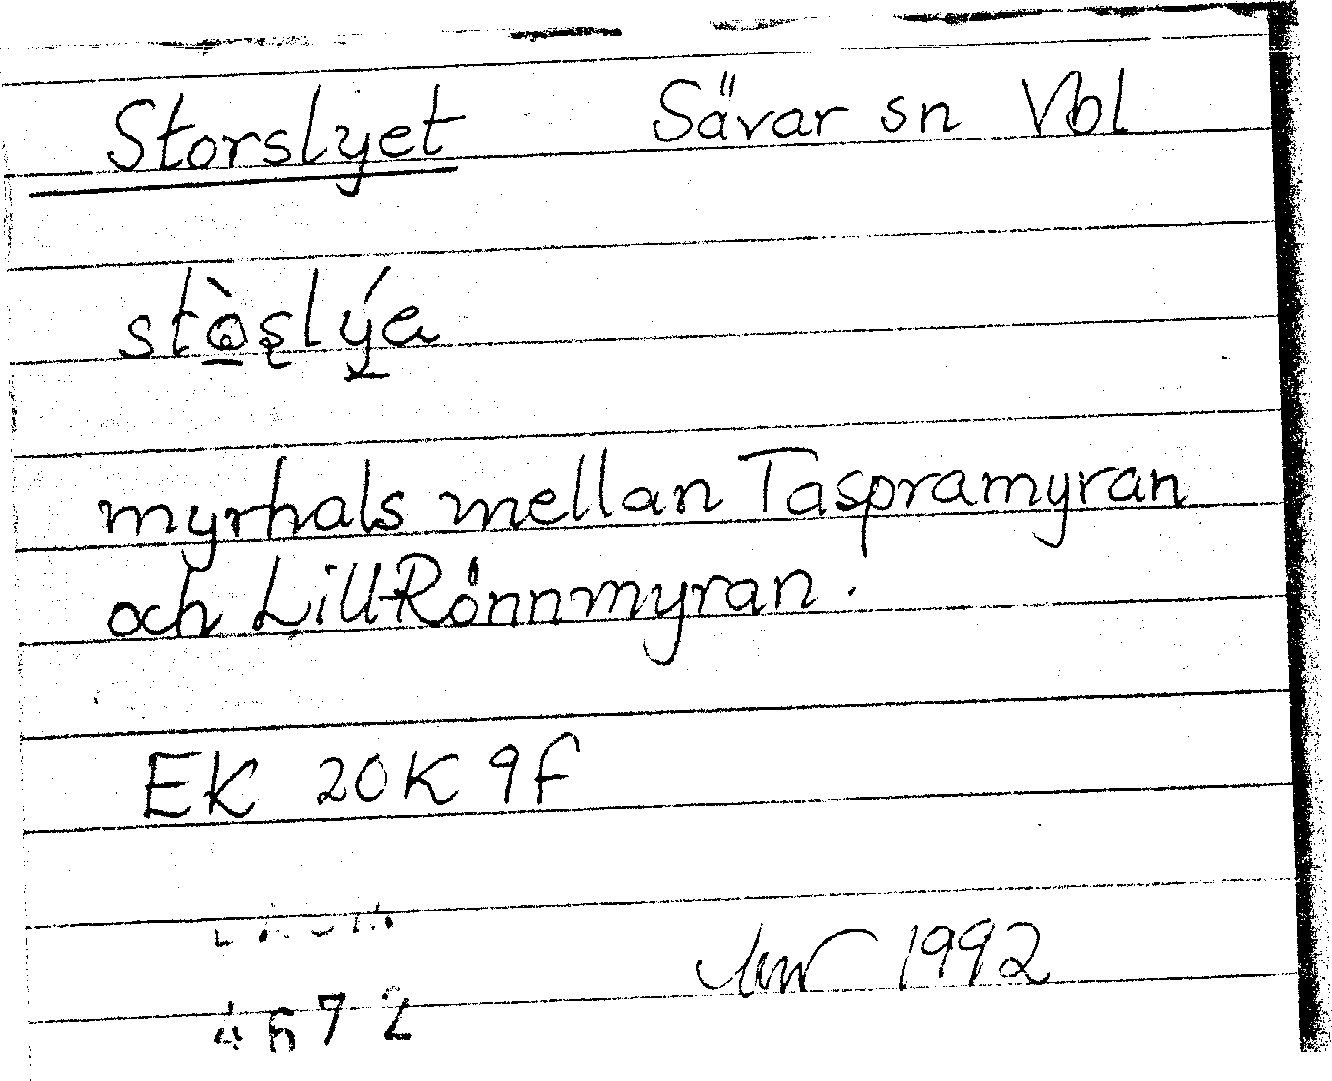 Storslyet Sävar sn Vbl
stò̱șlý̱a
myrhals mellan Taspramyran
och Lill-Rönnmyran.
EK 20K 9f
1992
4672